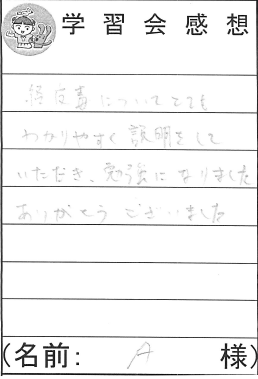 学習会感想
経皮毒についてとても
わかりやすく説明をして
いただき、勉強になりました
ありがとうございました
(名前: A 様)